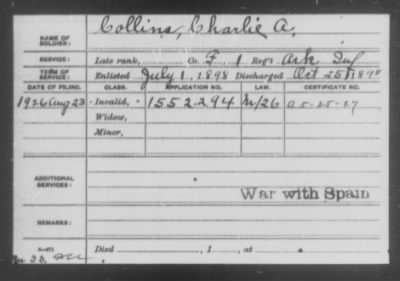 NAME OF SOLDIER: Collins, Charlie A.
SERVICE: Late rank, Co. F, 1 Reg't Ark Inf
TERM OF SERVICE: Enlisted July 1, 1898 Discharged Oct 25, 1898
DATE OF FILING. CLASS. APPLICATION NO. LAW. CERTIFICATE NO.
1926 Aug 23 Invalid, 1552294 a 5-25-27
Widow,
Minor,
ADDITIONAL SERVICES:
War with Spain
REMARKS:
Died , 1 , at